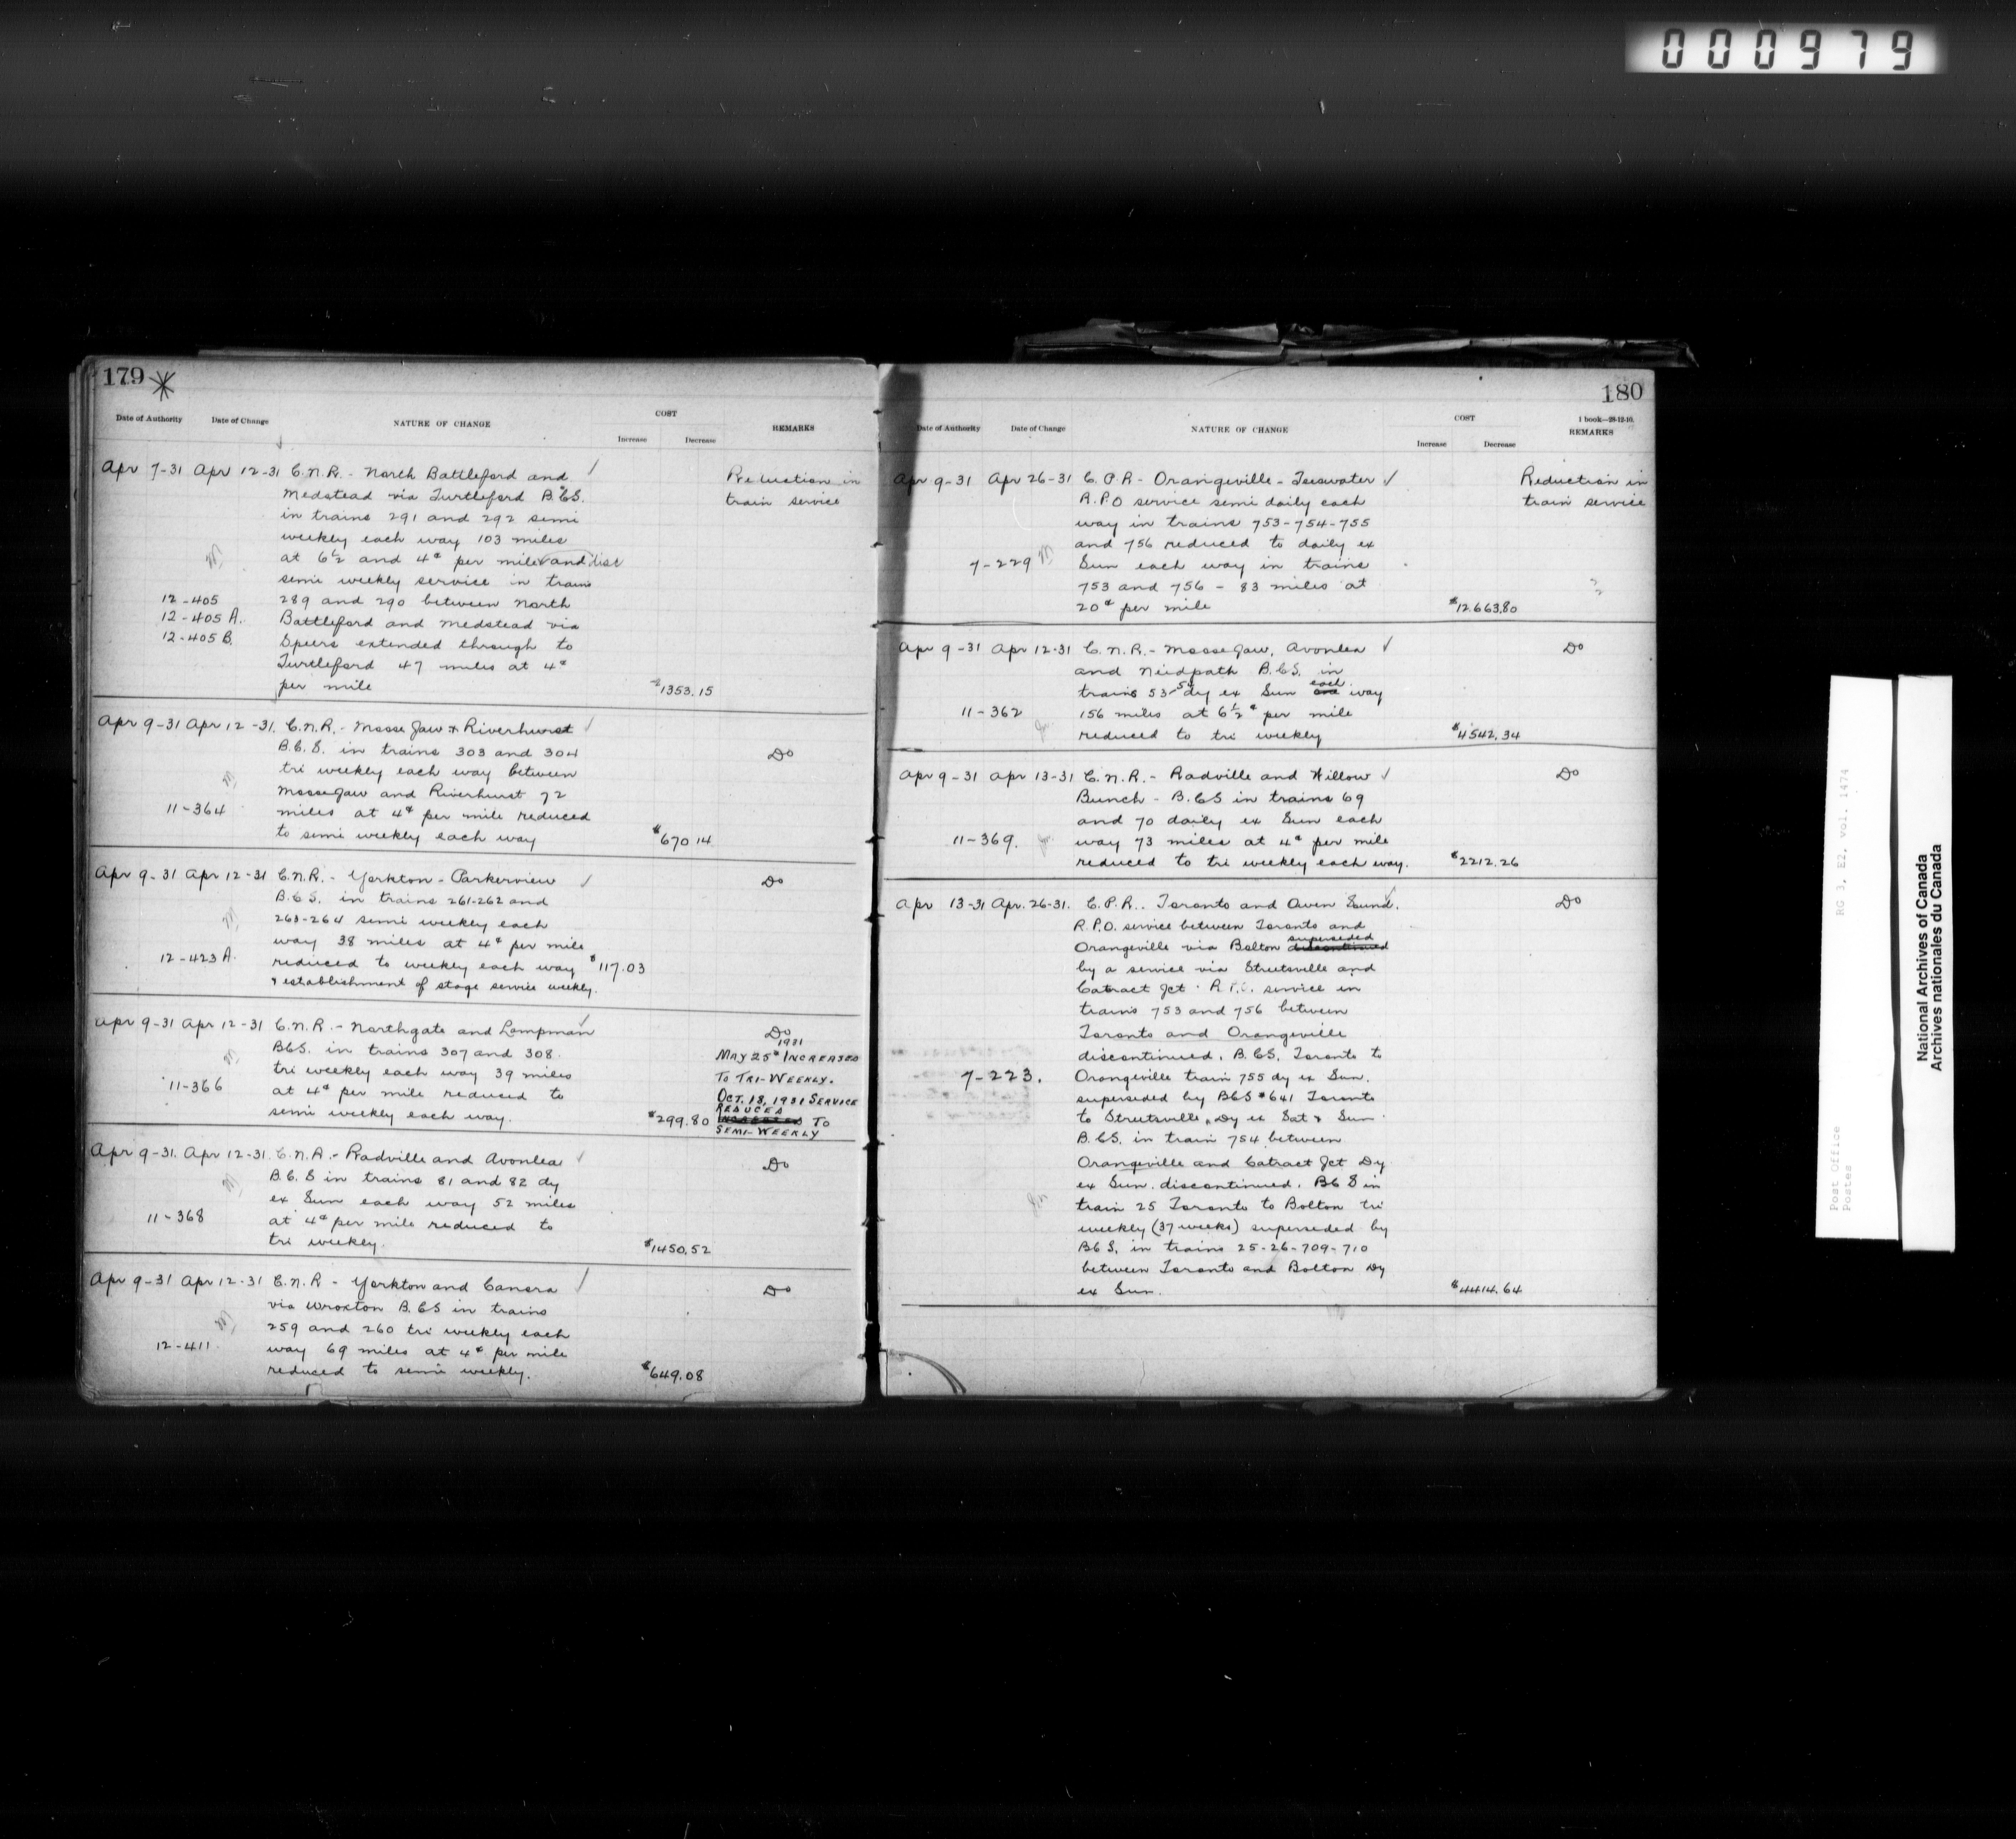 000979
179
Date of Authority Date of Change NATURE OF CHANGE COST Increase Decrease REMARKS
Apr 7-31 Apr 12-31 C.N.R. - North Battleford and Reduction in
Medstead via Turtleford B.C.S. train service
in trains 291 and 292 semi
weekly each way 103 miles
at 6½ and 4¢ per mile and disc
semi weekly service in trains
12-405 289 and 290 between North
12-405 A. Battleford and Medstead via
12-405 B. Speers extended through to
Turtleford 47 miles at 4¢
per mile $1353.15
Apr 9-31 Apr 12-31. C.N.R. - Moose Jaw & Riverhurst
B.C.S. in trains 303 and 304 Do
tri weekly each way between
Moosejaw and Riverhurst 72
11-364 miles at 4¢ per mile reduced
to semi weekly each way $670.14
Apr 9-31 Apr 12-31 C.N.R. - Yorkton - Parkerview Do
B.C.S. in trains 261-262 and
263-264 semi weekly each
way 38 miles at 4¢ per mile
12-423 A. reduced to weekly each way $117.03
& establishment of stage service weekly.
Apr 9-31 Apr 12-31 C.N.R. - Northgate and Lampman Do
BCS. in trains 307 and 308. 1931 MAY 25th INCREASED
tri weekly each way 39 miles TO TRI-WEEKLY.
11-366 at 4¢ per mile reduced to OCT. 18, 1931 SERVICE
semi weekly each way. $299.80 REDUCES INCREASED TO
SEMI-WEEKLY
Apr 9-31. Apr 12-31. C.N.R. - Radville and Avonlea Do
B.C.S in trains 81 and 82 dy
ex Sun each way 52 miles
11-368 at 4¢ per mile reduced to
tri weekly. $1450.52
Apr 9-31 Apr 12-31 C.N.R - Yorkton and Canora Do
via Wroxton B.CS in trains
259 and 260 tri weekly each
12-411 way 69 miles at 4¢ per mile
reduced to semi weekly. $649.08
180
Date of Authority Date of Change NATURE OF CHANGE COST Increase Decrease 1 book-28-12-10. REMARKS
Apr 9-31 Apr 26-31 C.P.R - Orangeville - Teeswater Reduction in
R.P.O service semi daily each train service
way in trains 753-754-755
and 756 reduced to daily ex
7-229 Sun each way in trains
753 and 756 - 83 miles at
20¢ per mile $12.663.80
Apr 9-31 Apr 12-31 C.N.R. - Moose Jaw, Avonlea Do
and Neidpath B.C.S. in
trains 53-54 dy ex Sun each way
11-362 156 miles at 6½¢ per mile
reduced to tri weekly $4542.34
Apr 9-31 Apr 13-31 C.N.R. - Radville and Willow Do
Bunch - B.CS in trains 69
and 70 daily ex Sun each
11-369. way 73 miles at 4¢ per mile
reduced to tri weekly each way. $2212.26
Apr 13-31 Apr. 26-31. C.P.R. - Toronto and Owen Sound. Do
R.P.O. service between Toronto and
Orangeville via Bolton superseded discontinued
by a service via Streetsville and
Cataract Jct. R.P.O. service in
trains 753 and 756 between
Toronto and Orangeville
discontinued. B.CS. Toronto to
7-223. Orangeville train 755 dy ex Sun.
superseded by BCS #641 Toronto
to Streetsville, Dy ex Sat & Sun.
B.CS. in train 754 between
Orangeville and Cataract Jct Dy
ex Sun. discontinued. BCS in
train 25 Toronto to Bolton tri
weekly (37 weeks) superseded by
BCS. in trains 25-26-709-710
between Toronto and Bolton Dy
ex Sun. $4414.64
Post Office RG 3, E2, vol. 1474
Postes
National Archives of Canada
Archives nationales du Canada